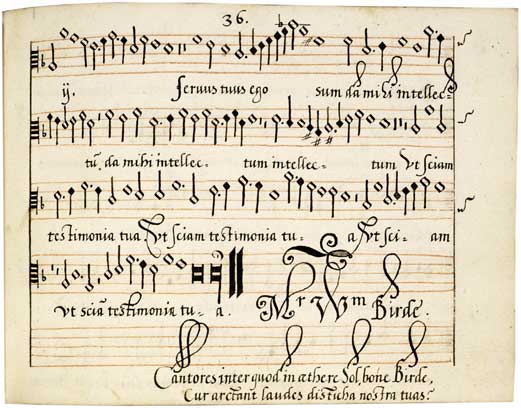 36.
ij. seruus tuus ego sum da mihi intellec-
tū. da mihi intellec- tum intellec- tum Vt sciam
testimonia tua Vt sciam testimonia tu- a Vt sci- am
vt sciā testimonia tu- a.
Mr Wm Birde.
Cantores inter quod in æthere Sol, bone Birde,
Cur arctant laudes disticha nostra tuas?